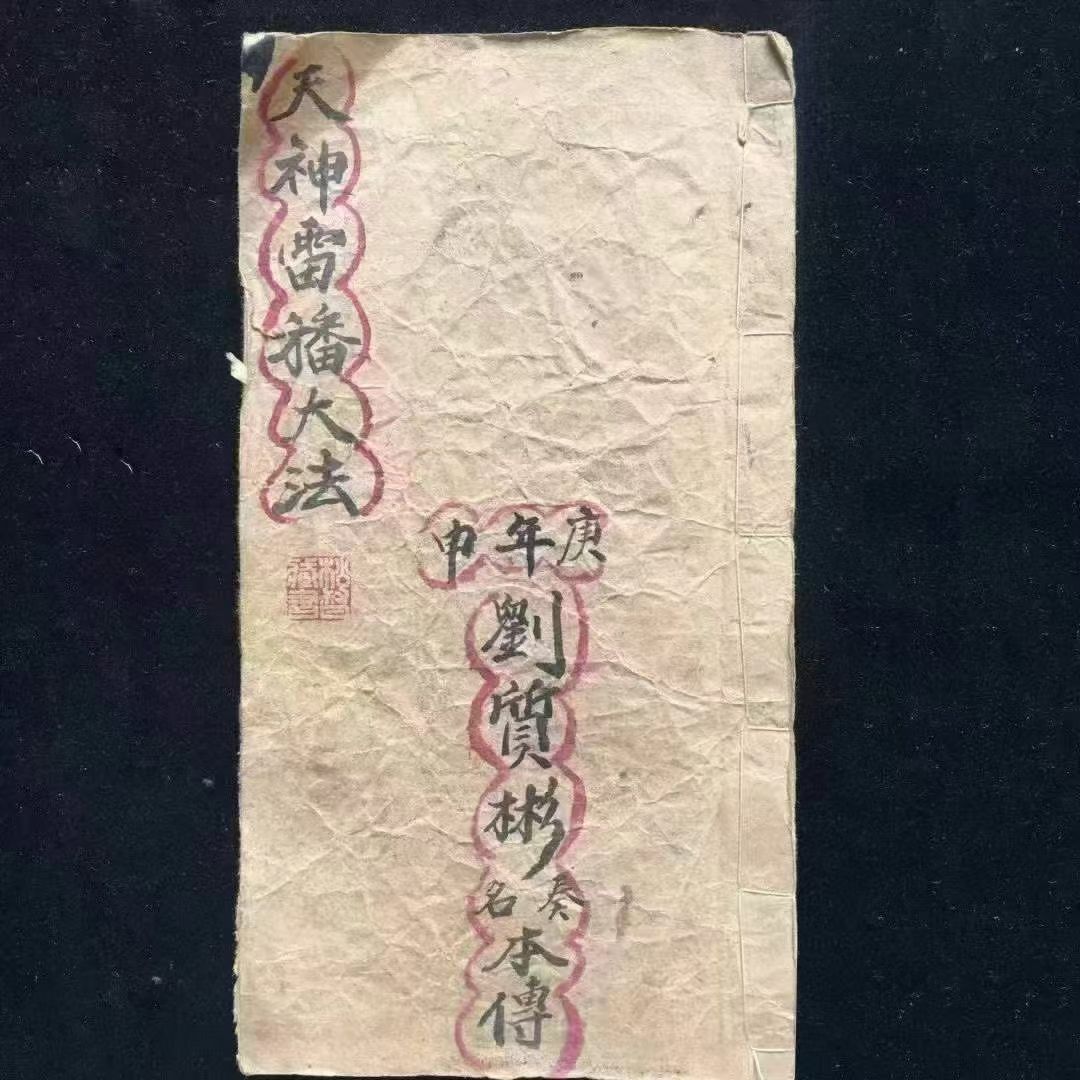 天神雷旛大法
庚申年劉質彬奏名本傳